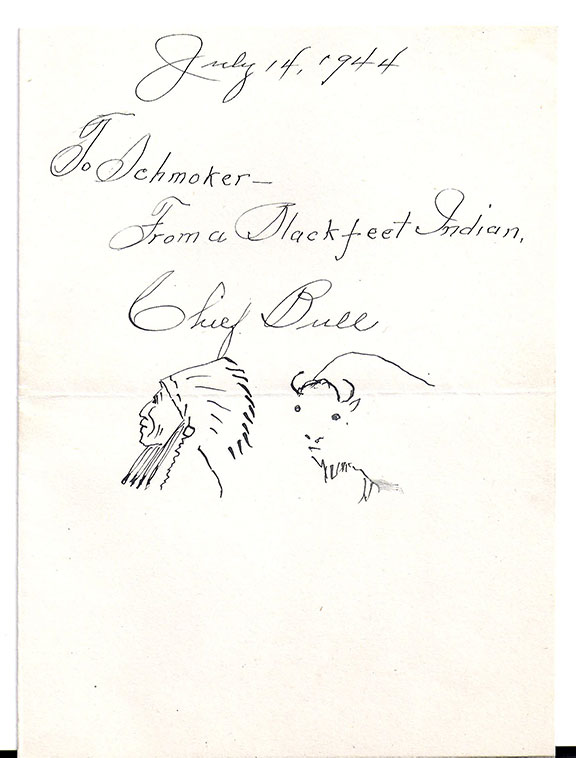 July 14, 1944
To Schmoker—
From a Blackfeet Indian,
Chief Bull